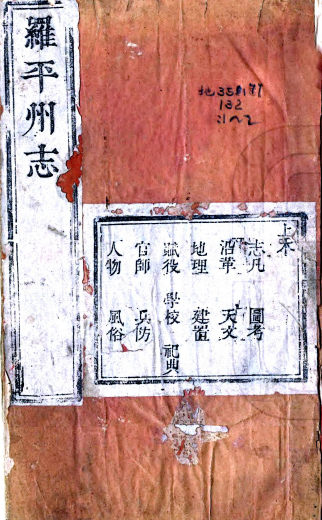 羅平州志
上本
志凡 圖考
沿革 天文
地理 建置
賦役 學校 祀典
官師 兵防
人物 風俗